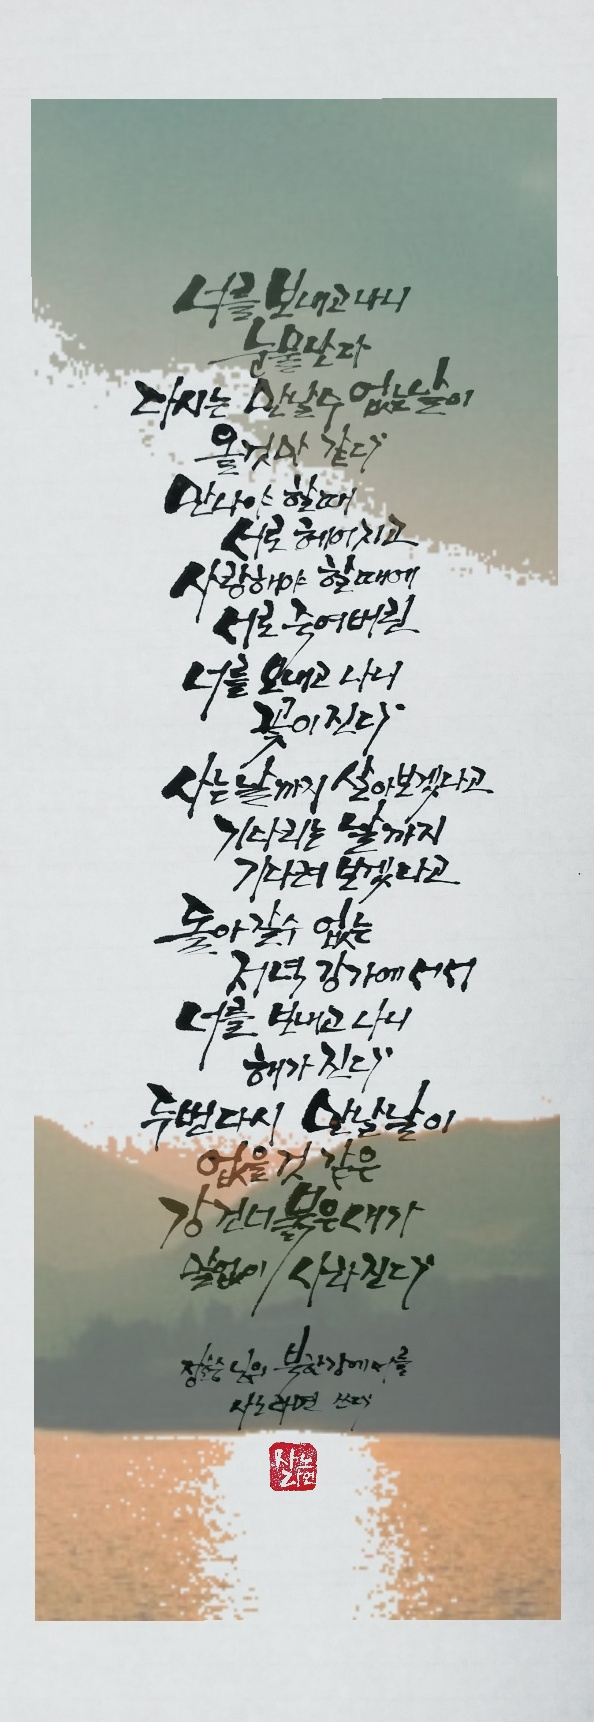 너를 보내고 나니
눈물난다
다시는 만날수 없는 날이
올것만 같다
만나야 할때
서로 헤어지고
사랑해야 할때에
서로 죽여버린
너를 보내고 나니
꽃이 진다
사는날까지 살아보겠다고
기다리는 날까지
기다려 보겠다고
돌아갈수 없는
저녁 강가에 서서
너를 보내고 나니
해가 진다
두번다시 만날날이
없을것 같은
강 건너 붉은새가
말없이 사라진다
정호승 님의 북한강에서를
사노라면 쓰다
사노라면